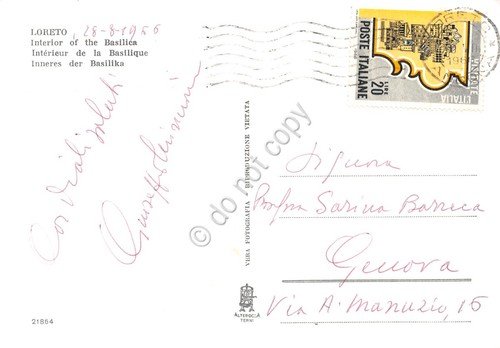 LORETO, 28-8-1966
Interior of the Basilica
Intérieur de la Basilique
Inneres der Basilika
Cordiali saluti
21854
VERA FOTOGRAFIA - RIPRODUZIONE VIETATA
ALTEROCCA
TERNI
do not copy
POSTE ITALIANE
LIRE 20
L'ITALIA
Signora
Prof.ssa Sarina Barnica
Genova
Via A. Manuzio, 16